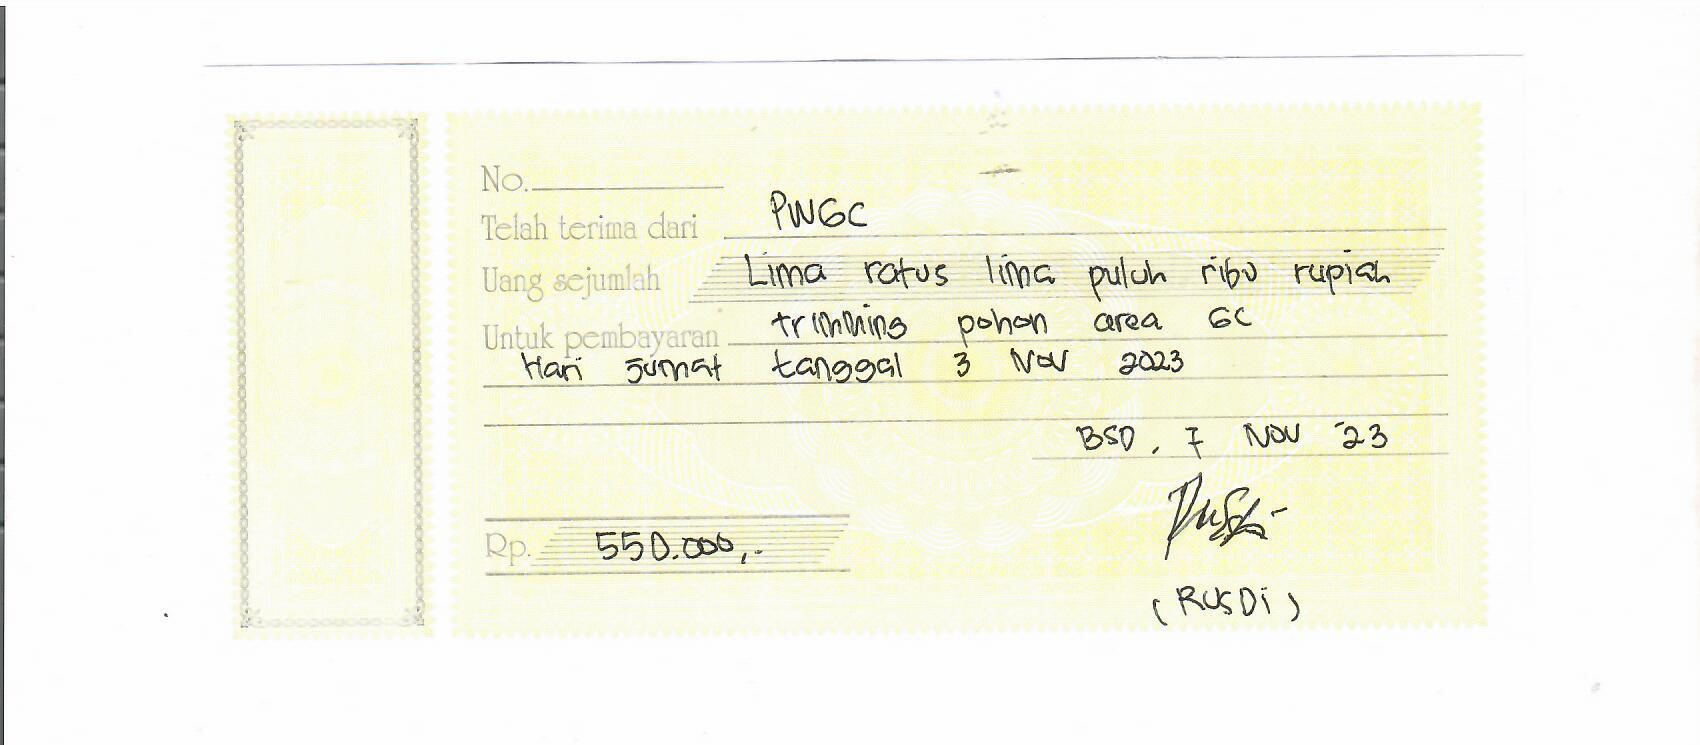 No.
Telah terima dari PWGC
Uang sejumlah Lima ratus lima puluh ribu rupiah
Untuk pembayaran trimming pohon area GC
Hari Jumat tanggal 3 Nov 2023
BSD, 7 Nov '23
Rp. 550.000,-
(RUSDi)